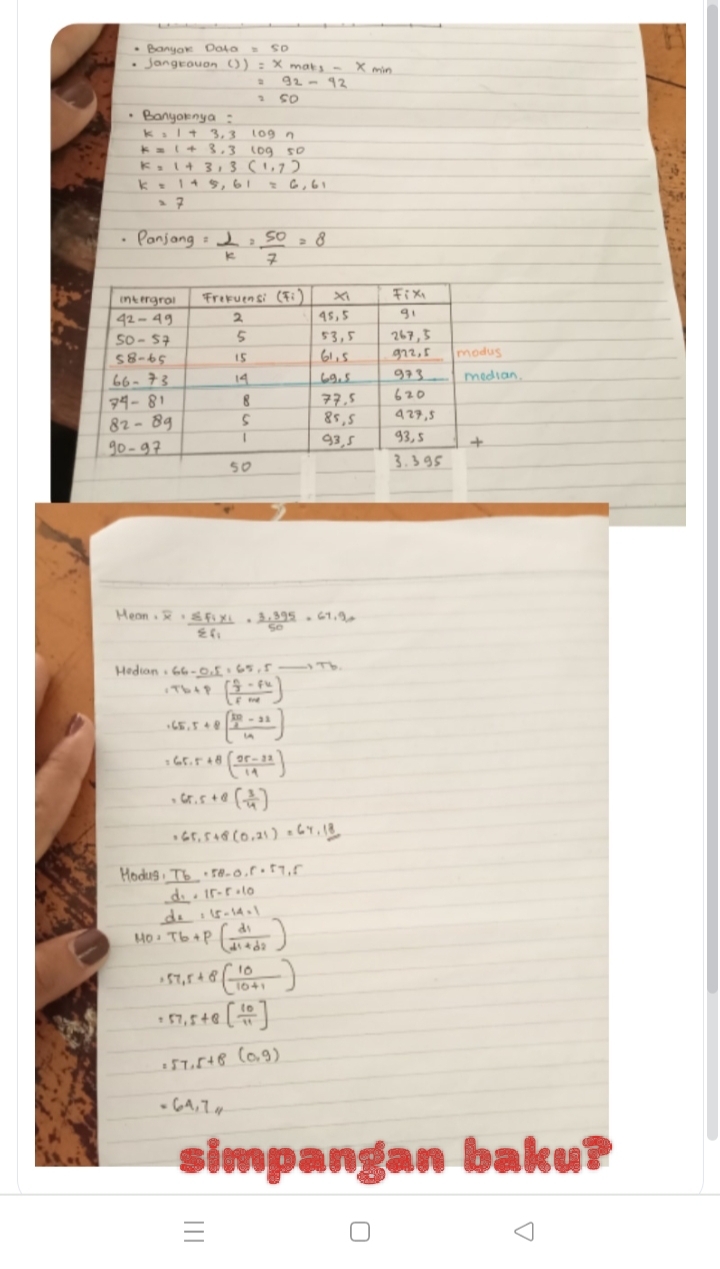 • Banyak Data = 50
• Jangkauan (J) = X maks - X min
= 92 - 42
= 50
• Banyaknya =
k = 1 + 3,3 log n
k = 1 + 3,3 log 50
k = 1 + 3,3 (1,7)
k = 1 + 5,61 = 6,61
= 7
• Panjang = J/k = 50/7 = 8
Intergral Frekuensi (Fi) Xi FiXi
42-49 2 45,5 91
50-57 5 53,5 267,5
58-65 15 61,5 922,5 modus
66-73 14 69,5 973 median.
74-81 8 77,5 620
82-89 5 85,5 427,5
90-97 1 93,5 93,5 +
50 3.395
Mean = x̄ = Σfixi/Σfi = 3.395/50 = 67,9
Median = 66-0,5 = 65,5 → Tb.
= Tb + P (n/2 - fk / f me)
= 65,5 + 8 (50/2 - 22 / 14)
= 65,5 + 8 (25-22 / 14)
= 65,5 + 8 (3/14)
= 65,5 + 8 (0,21) = 67,18
Modus = Tb = 58-0,5 = 57,5
d1 = 15-5 = 10
d2 = 15-14 = 1
Mo = Tb + P (d1 / d1+d2)
= 57,5 + 8 (10 / 10+1)
= 57,5 + 8 [10/11]
= 57,5 + 8 (0,9)
= 64,7
simpangan baku?